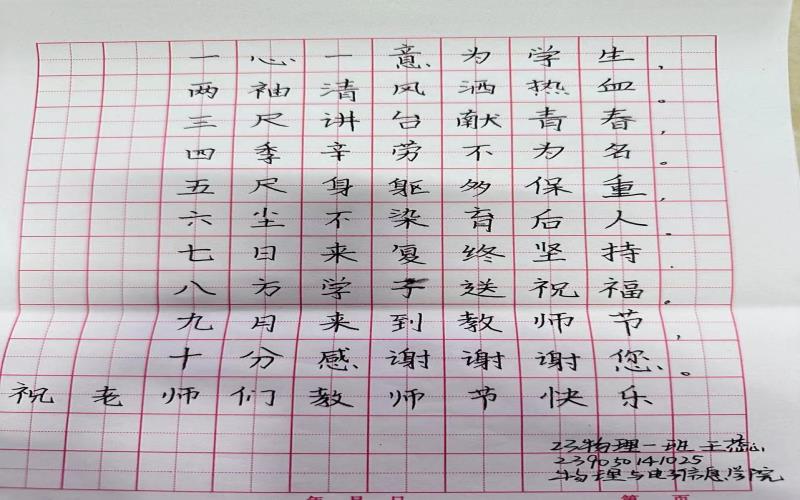 一心一意为学生,
两袖清风洒热血。
三尺讲台献青春,
四季辛劳不为名。
五尺身躯多保重,
六尘不染育后人。
七日来复终坚持.
八方学子送祝福。
九月来到教师节,
十分感谢谢谢您。
祝老师们教师节快乐
23物理一班 王蕊
239050141025
物理与电子信息学院
年 月 日 第 页